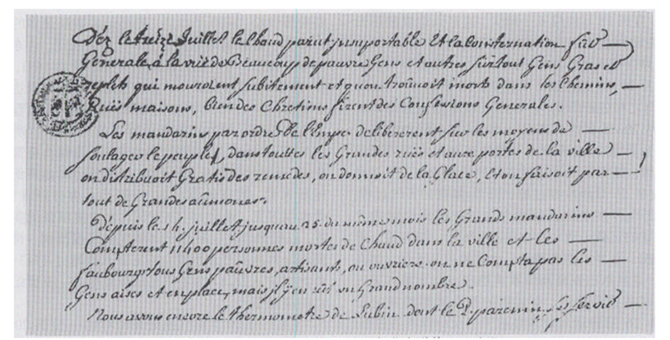 Déz le treize Juillet le chaud parut insuportable Et la Consternation fut
Generale, à la vüe de Beaucoup de pauvre Gens et autres surtout Gens Gras et
replets qui mouroient subitement et qu'on trouvoit morts dans les Chemins,
Rües maisons, bien des Chretiens firent des Confessions Generales.
Les mandarins par ordre de l'Empr delibererent sur les moyens de
soulager le peuple, dans touttes les Grandes rües et aux portes de la ville
on distribuoit Gratis des remedes, on donnoit de la Glace, et on faisoit par
tout de Grandes aûmones.
Depuis le 14. juillet jusquau 25. du même mois les Grands mandarins
Compterent 11400 personnes mortes de Chaud dans la ville et les
faubourgs tous Gens paûvres, artisants, ou ouvriers on ne Compta pas les
Gens aises et en place, mais il y en eût un Grand nombre.
Nous avons encore le thermometre de Lubin dont le P. parenin, s'est servit